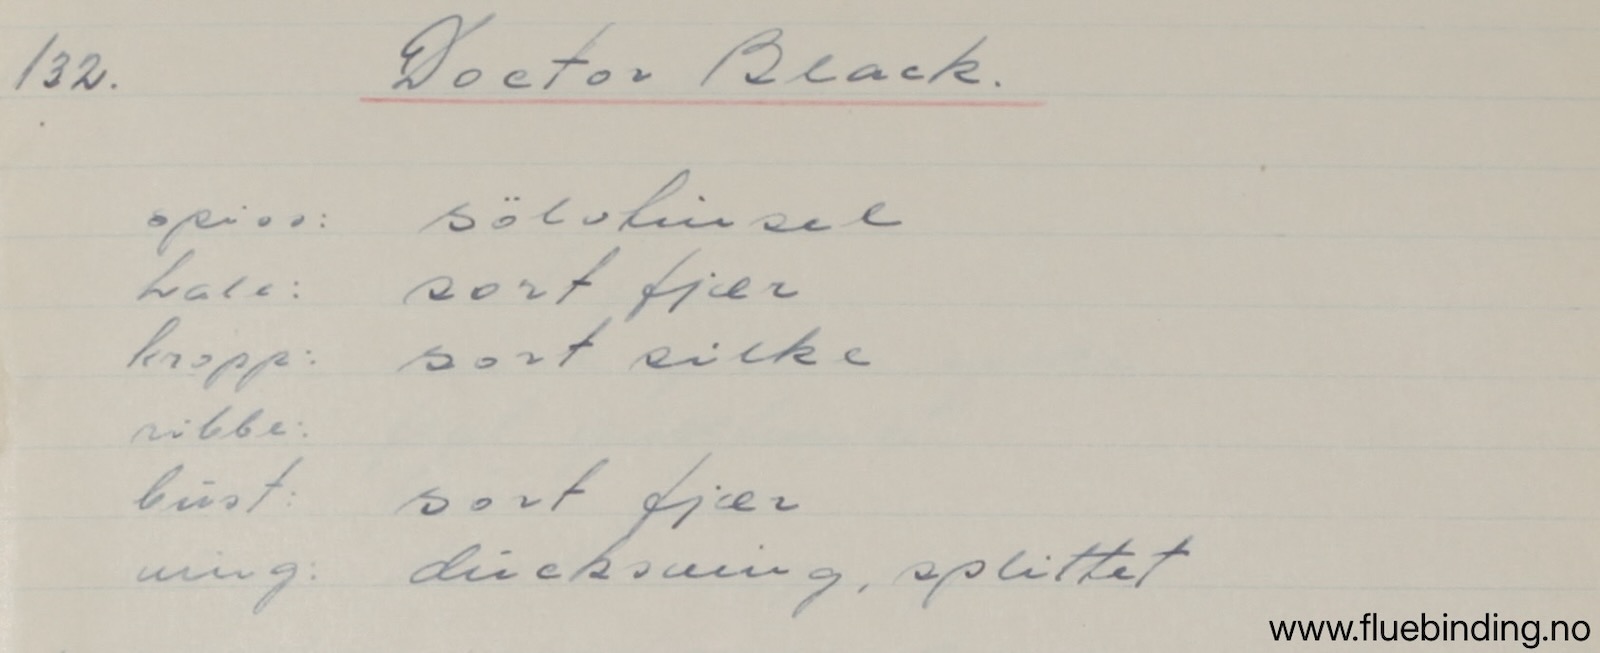 132. Doctor Black.
spiss: sölvtinsel
hale: sort fjær
kropp: sort silke
ribbe:
bust: sort fjær
wing: duckswing, splittet
www.fluebinding.no